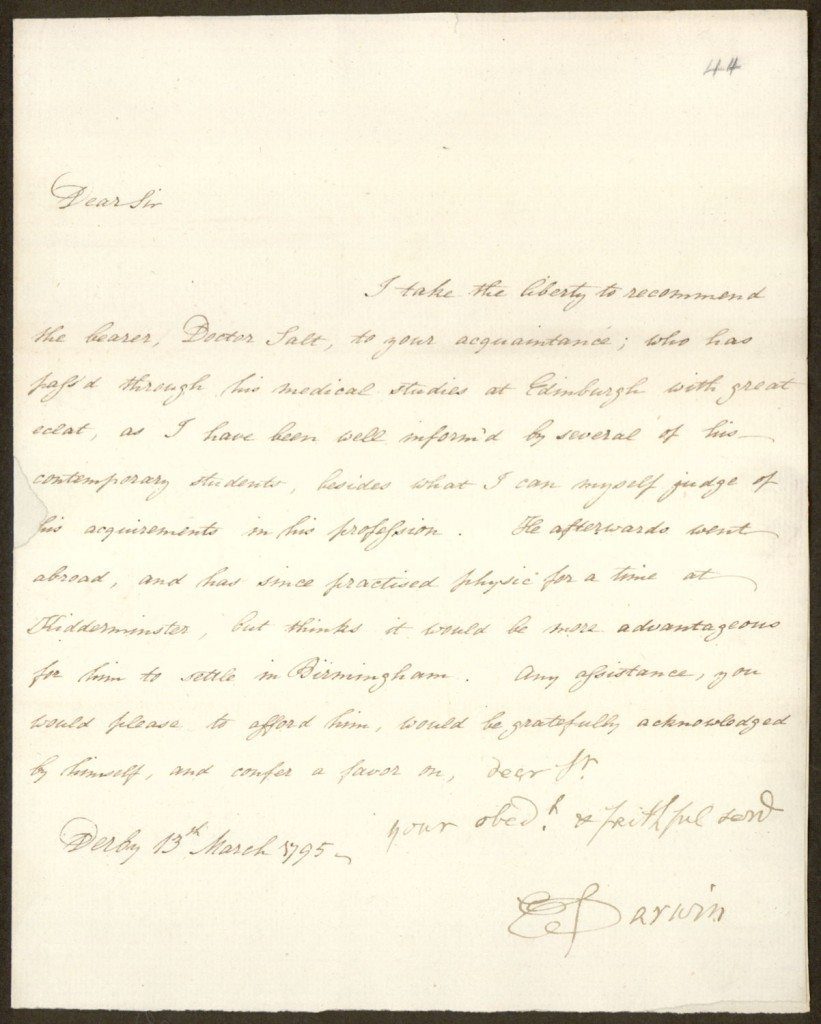 44
Dear Sir
I take the liberty to recommend
the bearer, Doctor Salt, to your acquaintance; who has
pass'd through his medical studies at Edinburgh with great
eclat, as I have been well inform'd by several of his
contemporary students, besides what I can myself judge of
his acquirements in his profession. He afterwards went
abroad, and has since practised physic for a time at
Kidderminster, but thinks it would be more advantageous
for him to settle in Birmingham. Any assistance, you
would please to afford him, would be gratefully acknowledged
by himself, and confer a favor on, dear Sr.
your obedt. & faithful serv
Derby 13th March 1795
E Darwin